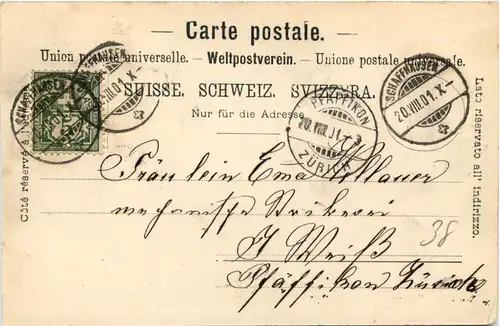 Carte postale.
Union postale universelle. — Weltpostverein. — Unione postale universale.
SUISSE. SCHWEIZ. SVIZZERA.
Nur für die Adresse.
Côté réservé à l'
Lato riservato all' indirizzo.
SCHAFFHAUSEN
VIII.01.X-
SCHAFFHAUSEN
20.VIII.01.X-
PFÄFFIKON
20.VIII.01.-
ZÜRICH
Fräulein Ema
mechanische Strikerei
J Weiß
Pfäffikon Zürich
38